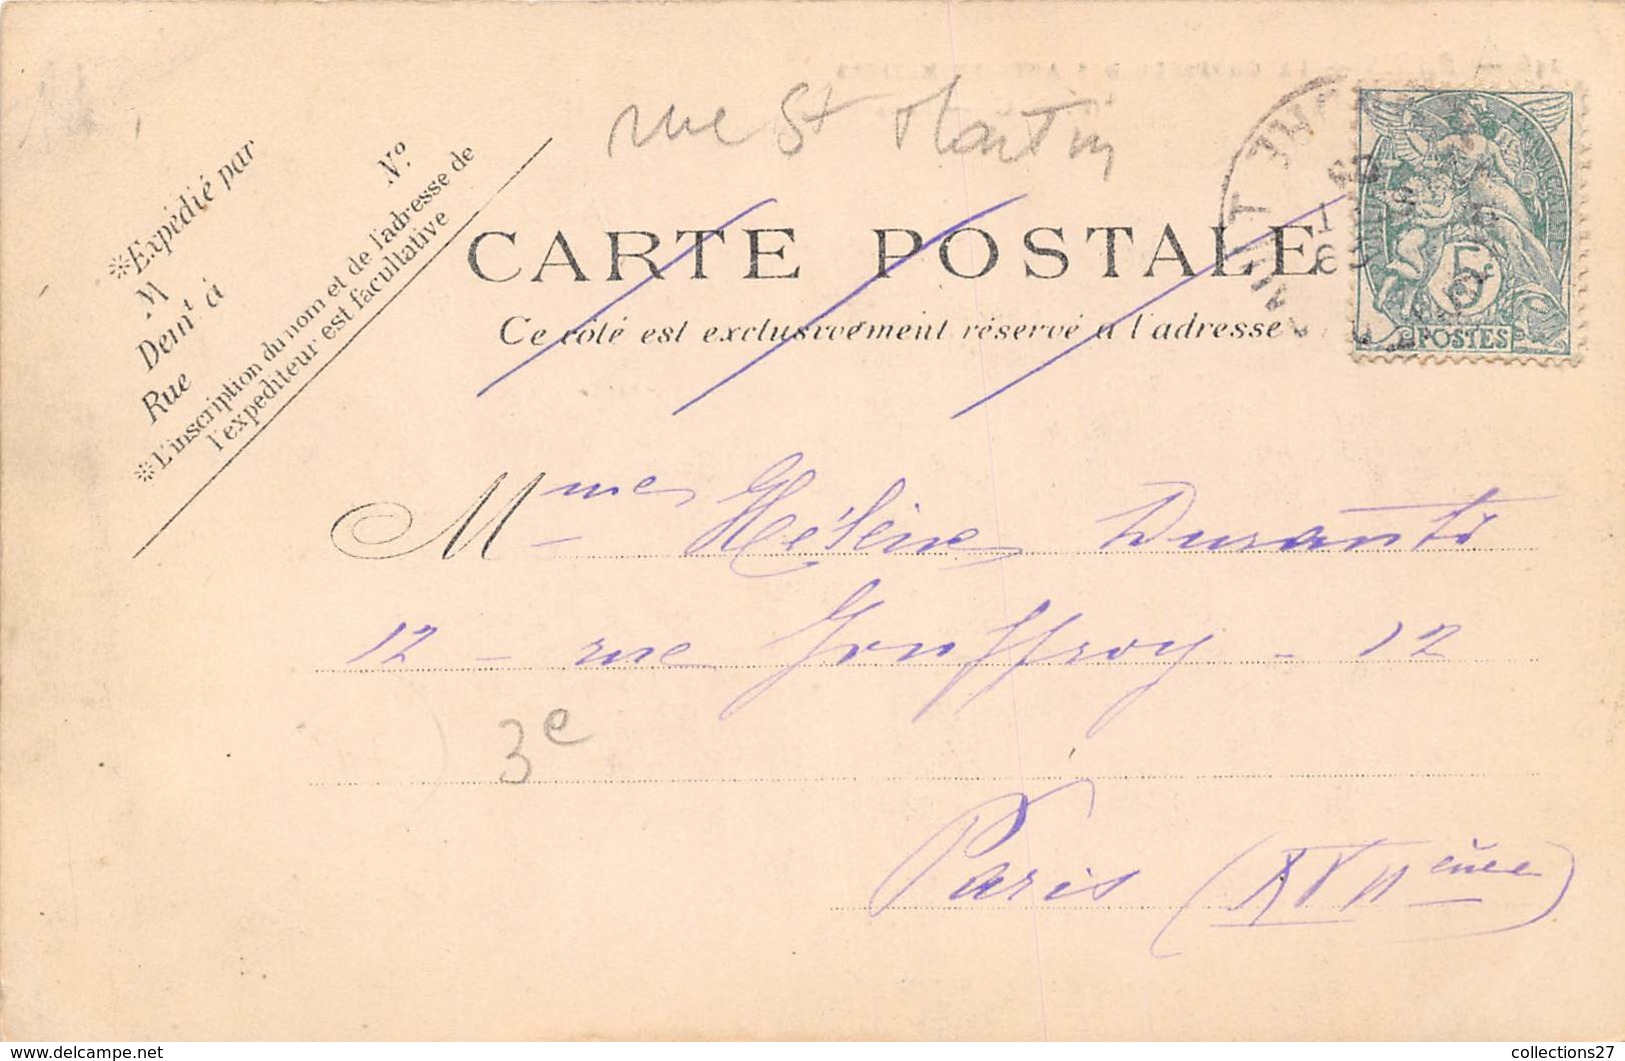 rue St Martin
*Expédié par
M
Demt à
Rue
N°
*L'inscription du nom et de l'adresse de
l'expéditeur est facultative
CARTE POSTALE
Ce côté est exclusivement réservé à l'adresse
5
POSTES
Mme Hélène Duranti
12 - rue Jouffroy - 12
3e
Paris (XVIIème)
collections27